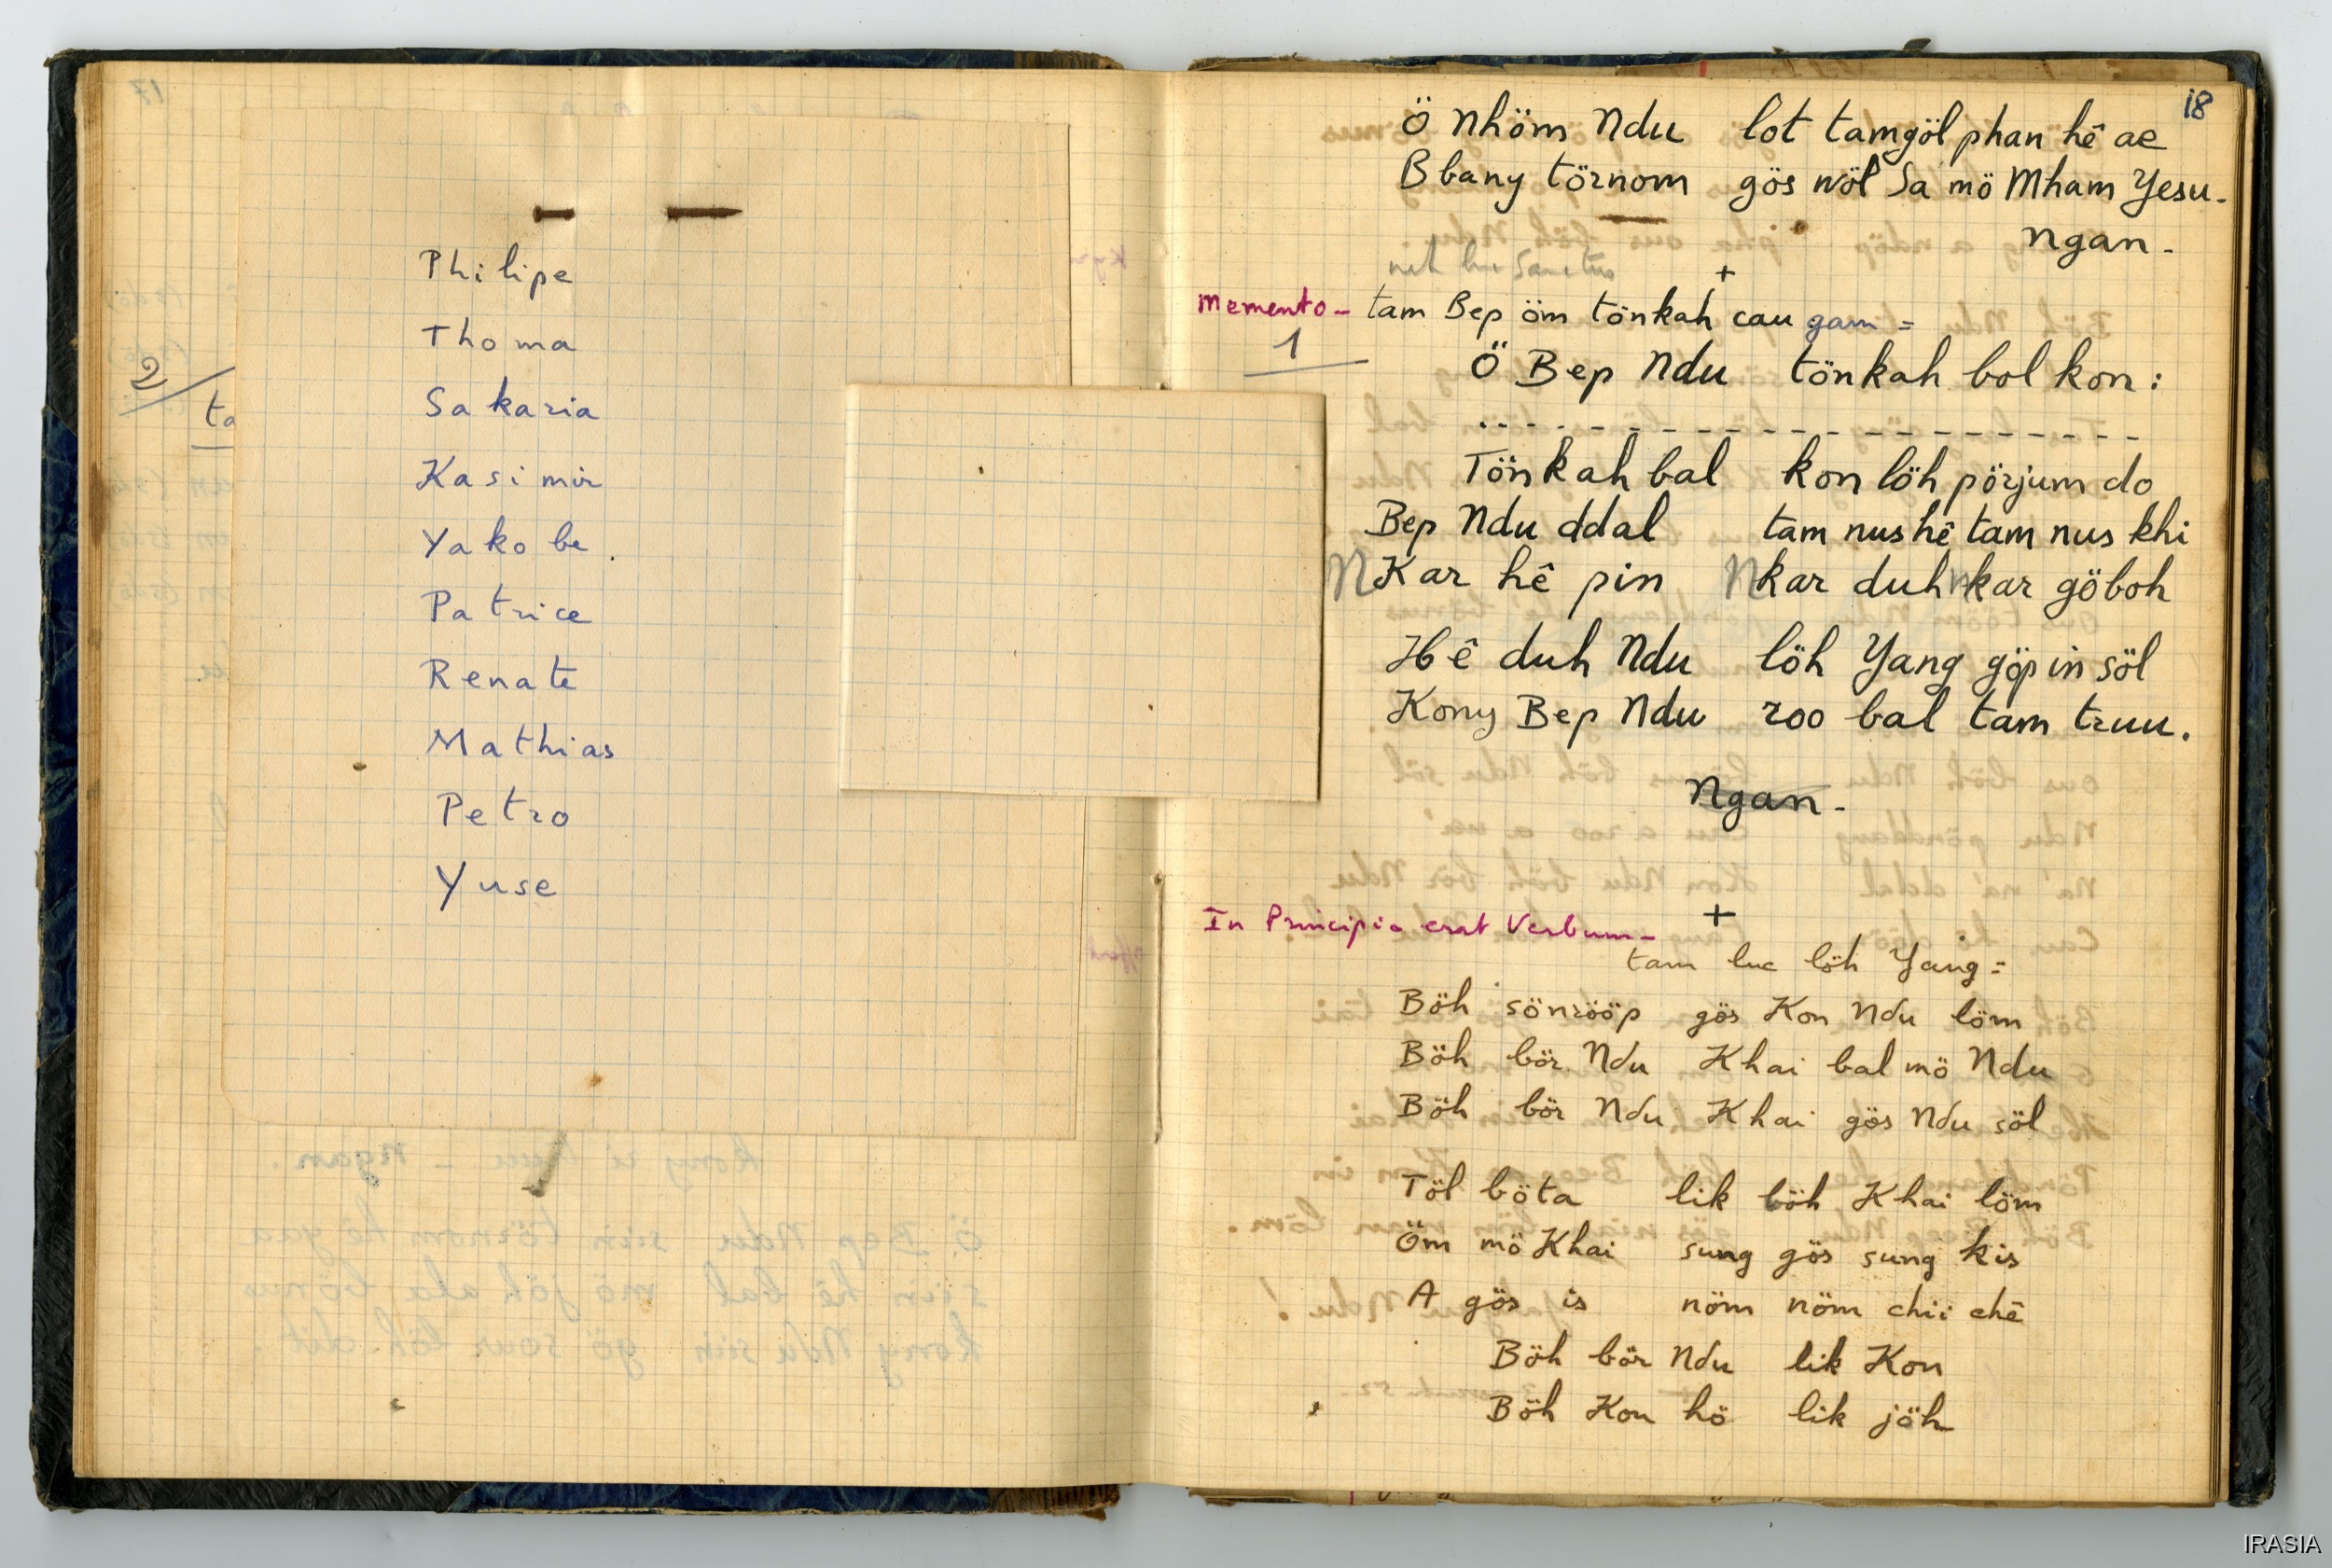 2/
ta
Philipe
Thoma
Sakaria
Kasimir
Yakobe.
Patrice
Renate
Mathias
Petro
Yuse
18
Ö Nhöm Ndu lot tamgöl phan hê ae
Bbany törnom gös wöl Sa mö Mham Yesu.
Ngan.
Sanctus
+
Memento - tam Bep öm tönkah cau gam =
1
Ö Bep Ndu tönkah bol kon :
Tönkah bal kon löh pörjum do
Bep Ndu ddal tam nus hê tam nus khi
NKar hê pin Nkar duh Nkar göboh
Hê duh Ndu löh Yang göp in söl
Kony Bep Ndu roo bal tam truu.
Ngan.
In Principio erat Verbum - +
tam luc löh Yang =
Böh sönrööp gös Kon Ndu löm
Böh bör Ndu Khai bal mö Ndu
Böh bör Ndu Khai gös Ndu söl
Töl böta lik böh Khai löm
Öm mö Khai sung gös sung kis
A gös is nöm nöm chii chê
Böh bör Ndu lik Kon
Böh Kon hö lik jöh
IRASIA